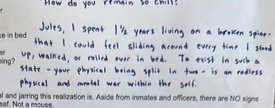 How do you remain so chill?
Jules, I spent 1½ years living on a broken spine-
e in bed
that I could feel sliding around every time I stood
er
up, walked, or rolled over in bed. To exist in such a
ping?
state - your physical being split in two - is an endless
physical and mental war within the self.
al and jarring this realization is. Aside from inmates and officers, there are NO signs
eaf. Not a mouse.